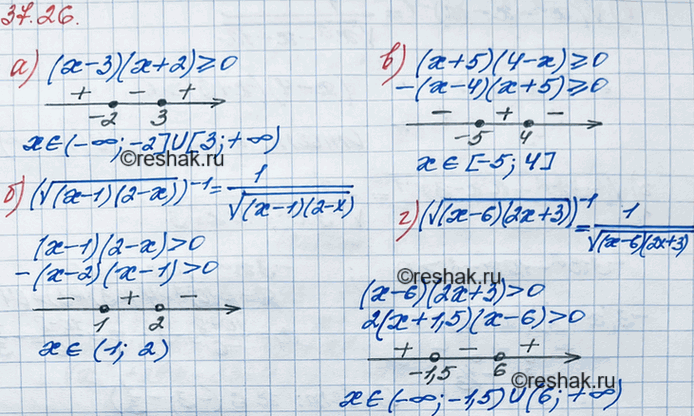 37.26.
а) (x-3)(x+2)≥0
+ - +
-2 3
x∈(-∞;-2]∪[3;+∞)
©reshak.ru
б) (√(x-1)(2-x))⁻¹=1/√(x-1)(2-x)
(x-1)(2-x)>0
-(x-2)(x-1)>0
- + -
1 2
x∈(1; 2)
в) (x+5)(4-x)≥0
-(x-4)(x+5)≥0
- + -
-5 4
x∈[-5; 4]
©reshak.ru
г) (√(x-6)(2x+3))⁻¹=1/√(x-6)(2x+3)
©reshak.ru
(x-6)(2x+3)>0
2(x+1,5)(x-6)>0
+ - +
-1,5 6
©reshak.ru
x∈(-∞;-1,5)∪(6;+∞)